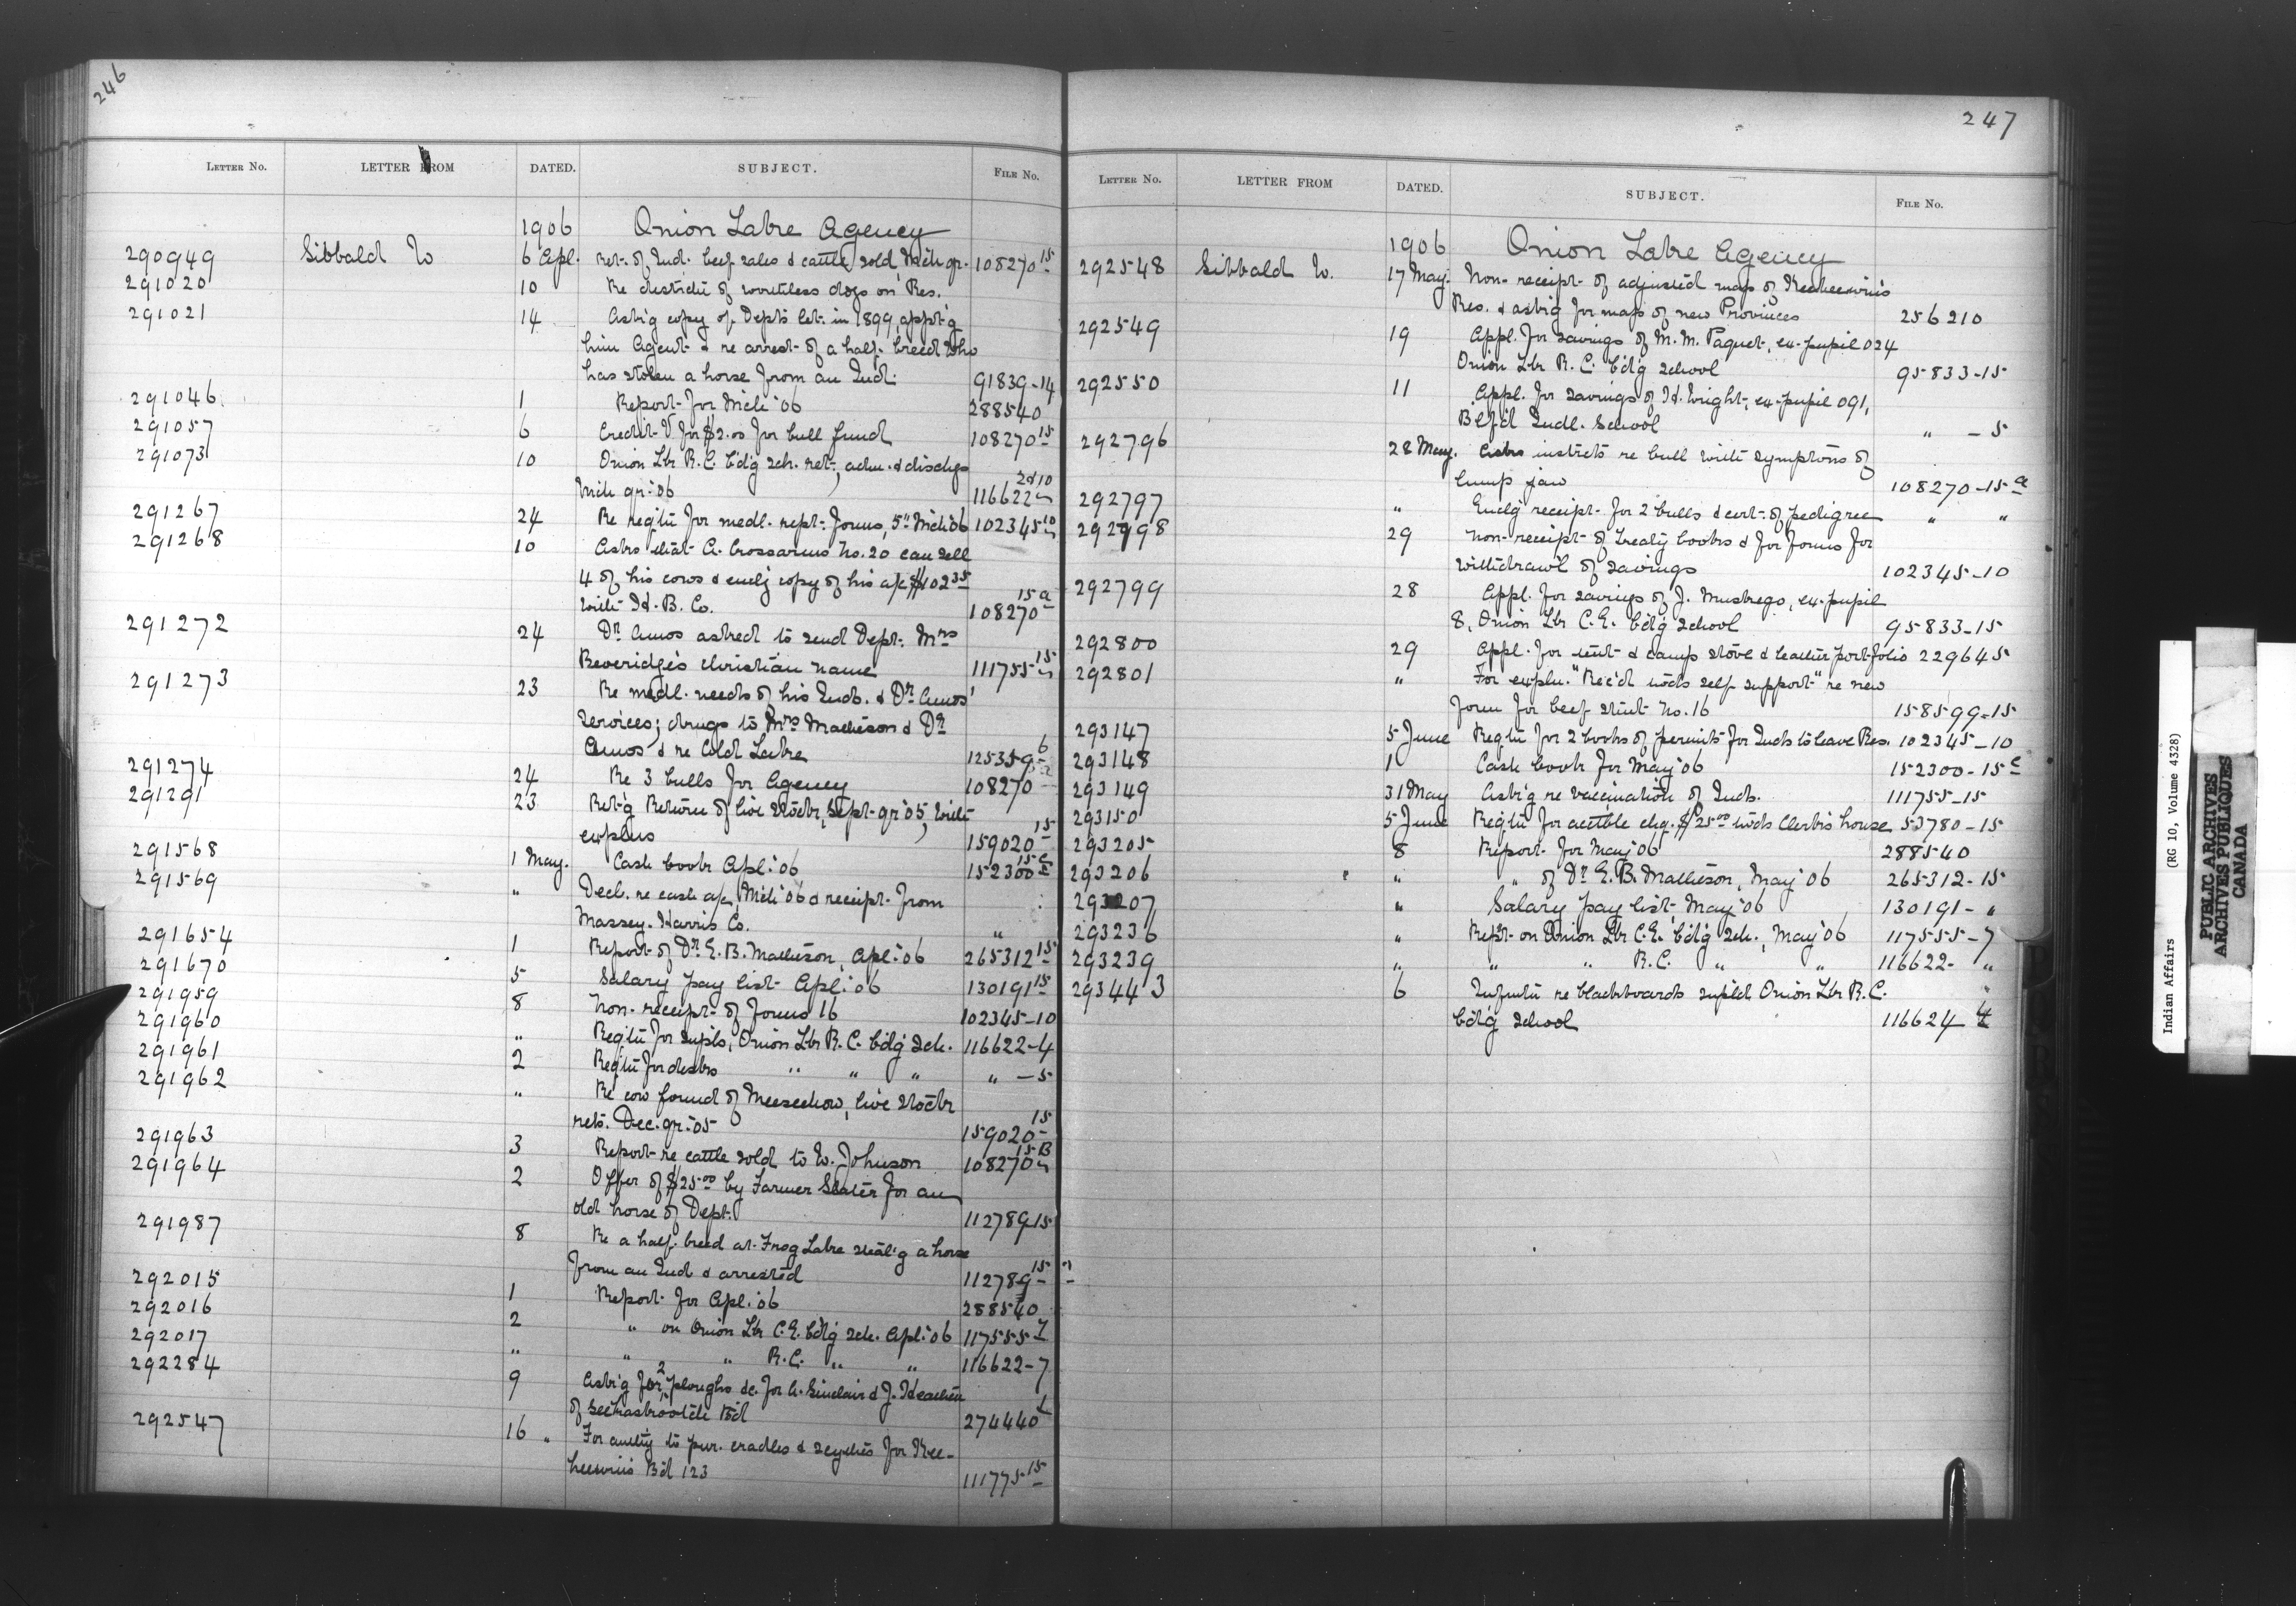 246
LETTER No. LETTER FROM DATED. SUBJECT. FILE No.
1906 Onion Lake Agency
290949 Sibbald W 6 Apl. Ret. of Ind. beef sales & cattle sold, Mch qr. 108270 15
291020 10 Re destrctn of worthless dogs on Res.
291021 14 Ask'g copy of Dept's let. in 1899 appt'g
him Agent & re arrest of a half-breed who
has stolen a horse from an Ind. 91839-14
291046 1 Report for Mch '06 288540
291057 6 Credit V for $2.00 for bull fund 108270 15
291073 10 Onion Lke R.C. b'd'g sch. ret., adm. & dischgs
Mch qr. '06 116622 2&10
291267 24 Re reqtn for medl. rept. forms, 5" Mch '06 102345 10
291268 10 Asks that A. Crossarms No. 20 can sell
4 of his cows & encl'g copy of his a/c $102 35
with H. B. Co. 108270 15 a
291272 24 Dr. Amos asked to send Dept. Mrs
Beveridge's christian name 111755 15
291273 23 Re medl. needs of his Inds. & Dr. Amos'
services; drugs to Mrs Matheson & Dr.
Amos & re Cold Lake 125359 6
291274 24 Re 3 bulls for Agency 108270
291291 23 Ret'g Return of live stock, Sept. qr '05, with
explns 159020 15
291568 1 May. Cash book Apl. '06 152300 15 c
291569 " Decl. re cash a/c Mch '06 & receipt from
Massey-Harris Co. "
291654 1 Report of Dr. E. B. Matheson, Apl. '06 265312 15
291670 5 Salary pay list Apl. '06 130191 15
291959 8 Non-receipt of Forms 16 102345-10
291960 " Reqtn for supls, Onion Lke R.C. b'd'g sch. 116622-4
291961 2 Reqtn for desks " " " " -5
291962 " Re cow found of Meesechow, live stock
rets. Dec. qr. '05 159020 15
291963 3 Report re cattle sold to W. Johnson 108270 15 B
291964 2 Offer of $25 00 by Farmer Slater for an
old horse of Dept. 112789 15
291987 8 Re a half-breed at Frog Lake steal'g a horse
from an Ind & arrested 112789 15
292015 1 Report for Apl. '06 288540
292016 2 " on Onion Lke C.E. b'd'g sch. Apl. '06 117555 7
292017 " " " R.C. " " 116622-7
292284 9 Ask'g for 2 ploughs &c. for A. Sinclair & J.
of B'd 274440
292547 16 " For authy to pur. cradles & scythes for Kee-
heewin's B'd 123 111775 15
247
LETTER No. LETTER FROM DATED. SUBJECT. FILE No.
1906 Onion Lake Agency
292548 Sibbald W. 17 May. Non-receipt of adjusted map of Keeheewin's
Res. & ask'g for maps of new Provinces 256210
292549 19 Appl. for savings of M. M. Paquet, ex-pupil 024
Onion Lke R. C. b'd'g school 95833-15
292550 11 Appl. for savings of H. Wright, ex-pupil 091,
B'lf'd Indl. School " -5
292796 28 May. Asks instrcts re bull with symptoms of
lump jaw 108270-15 a
292797 " Encl'g receipt for 2 bulls & cert. of pedigree " "
292798 29 Non-receipt of treaty books & for forms for
withdrawl of savings 102345-10
292799 28 Appl. for savings of J. Muskego, ex-pupil
8, Onion Lke C.E. b'd'g school 95833-15
292800 29 Appl. for tent & camp stove & leather portfolio 229645
292801 " For expln. "Rec'd w'ds self support" re new
form for beef stmt No. 16 158599-15
293147 5 June Reqtn for 2 books of permits for Inds to leave Res. 102345-10
293148 1 Cash book for May '06 152300-15 c
293149 31 May Ask'g re vaccination of Inds. 111755-15
293150 5 June Reqtn for acctble chq. $25 00 w'ds Clerk's house 53780-15
293205 8 Report for May '06 288540
293206 " " of Dr. E. B. Matheson, May '06 265312-15
293207 " Salary pay list, May '06 130191- "
293236 " Rept. on Onion Lke C.E. b'd'g sch., May '06 117555-7
293239 " " " R.C. " " 116622- "
293443 6 Infmtn re blackboards supld Onion Lke R.C.
b'd'g school 116624
Indian Affairs (RG 10, Volume 4328)
PUBLIC ARCHIVES
ARCHIVES PUBLIQUES
CANADA